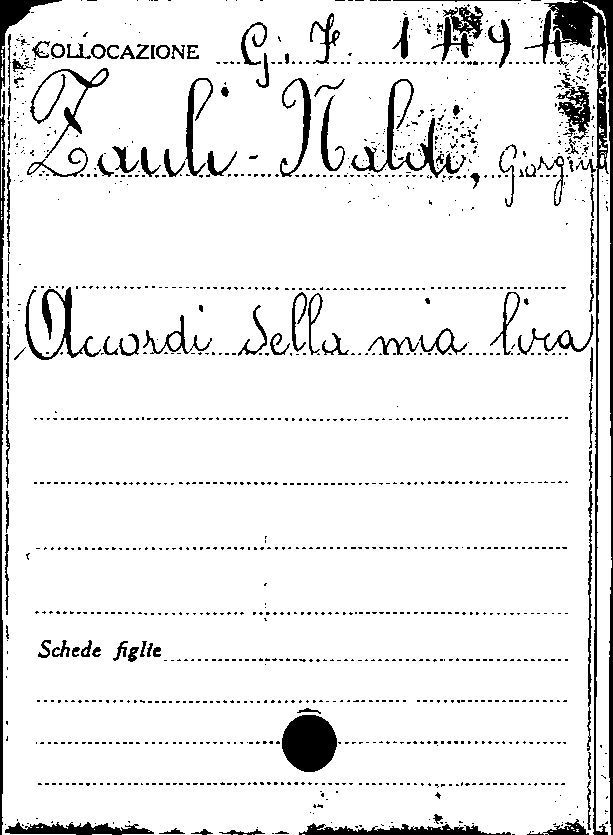 COLLOCAZIONE G. F. 1494
Zauli-Naldi, Giorgina
Accordi della mia lira
Schede figlie